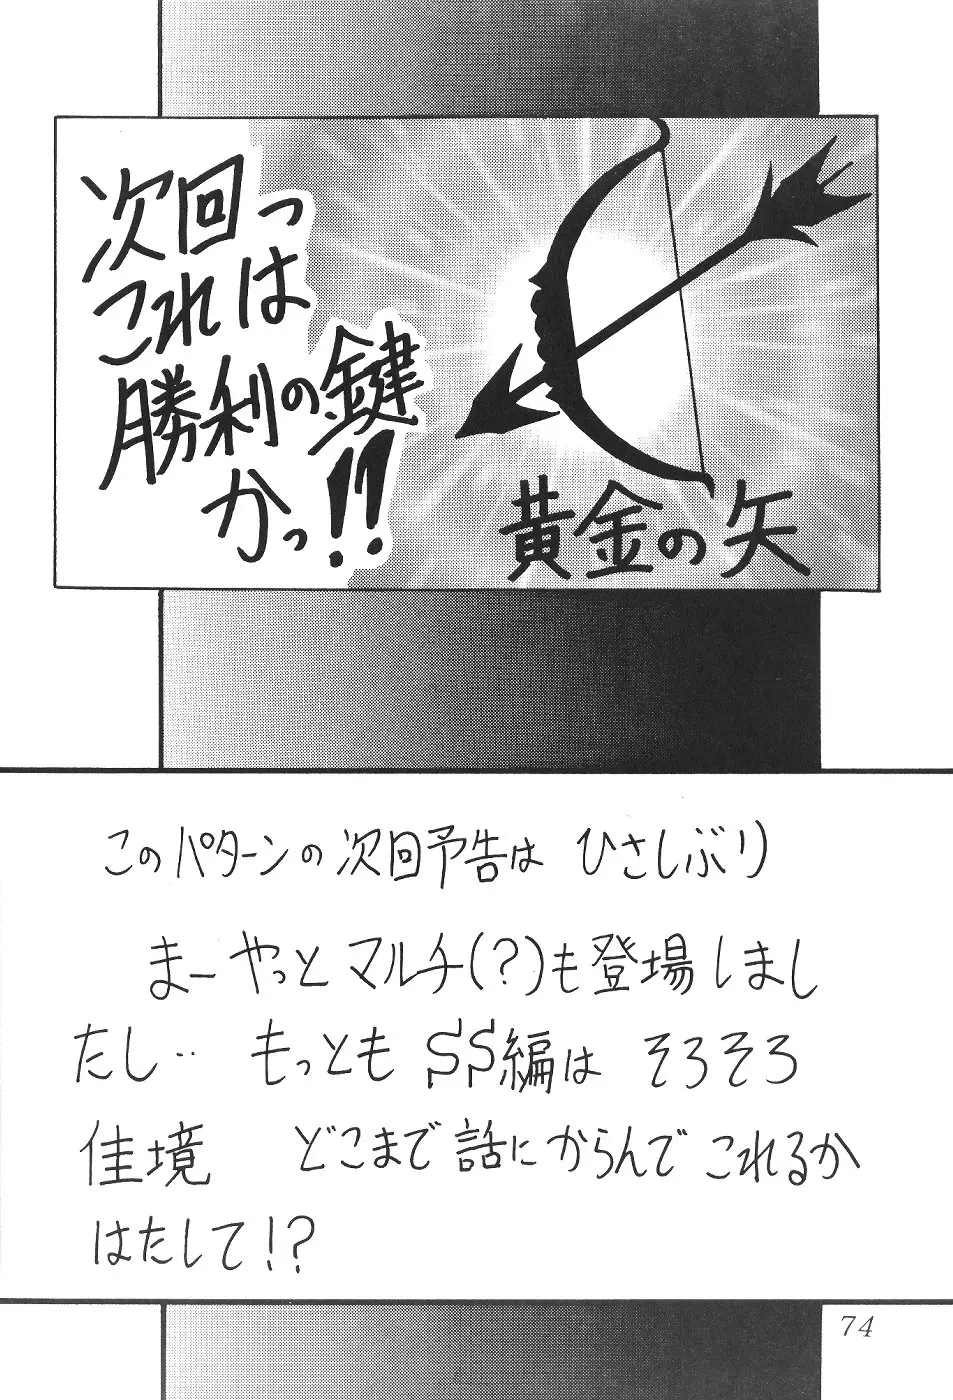 次回っ
これは
勝利の鍵
かっ!!
黄金の矢
このパターンの次回予告は ひさしぶり
まーやっとマルチ(?)も登場しまし
たし‥ もっとも SS編は そろそろ
佳境 どこまで話にからんでこれるか
はたして!?
74